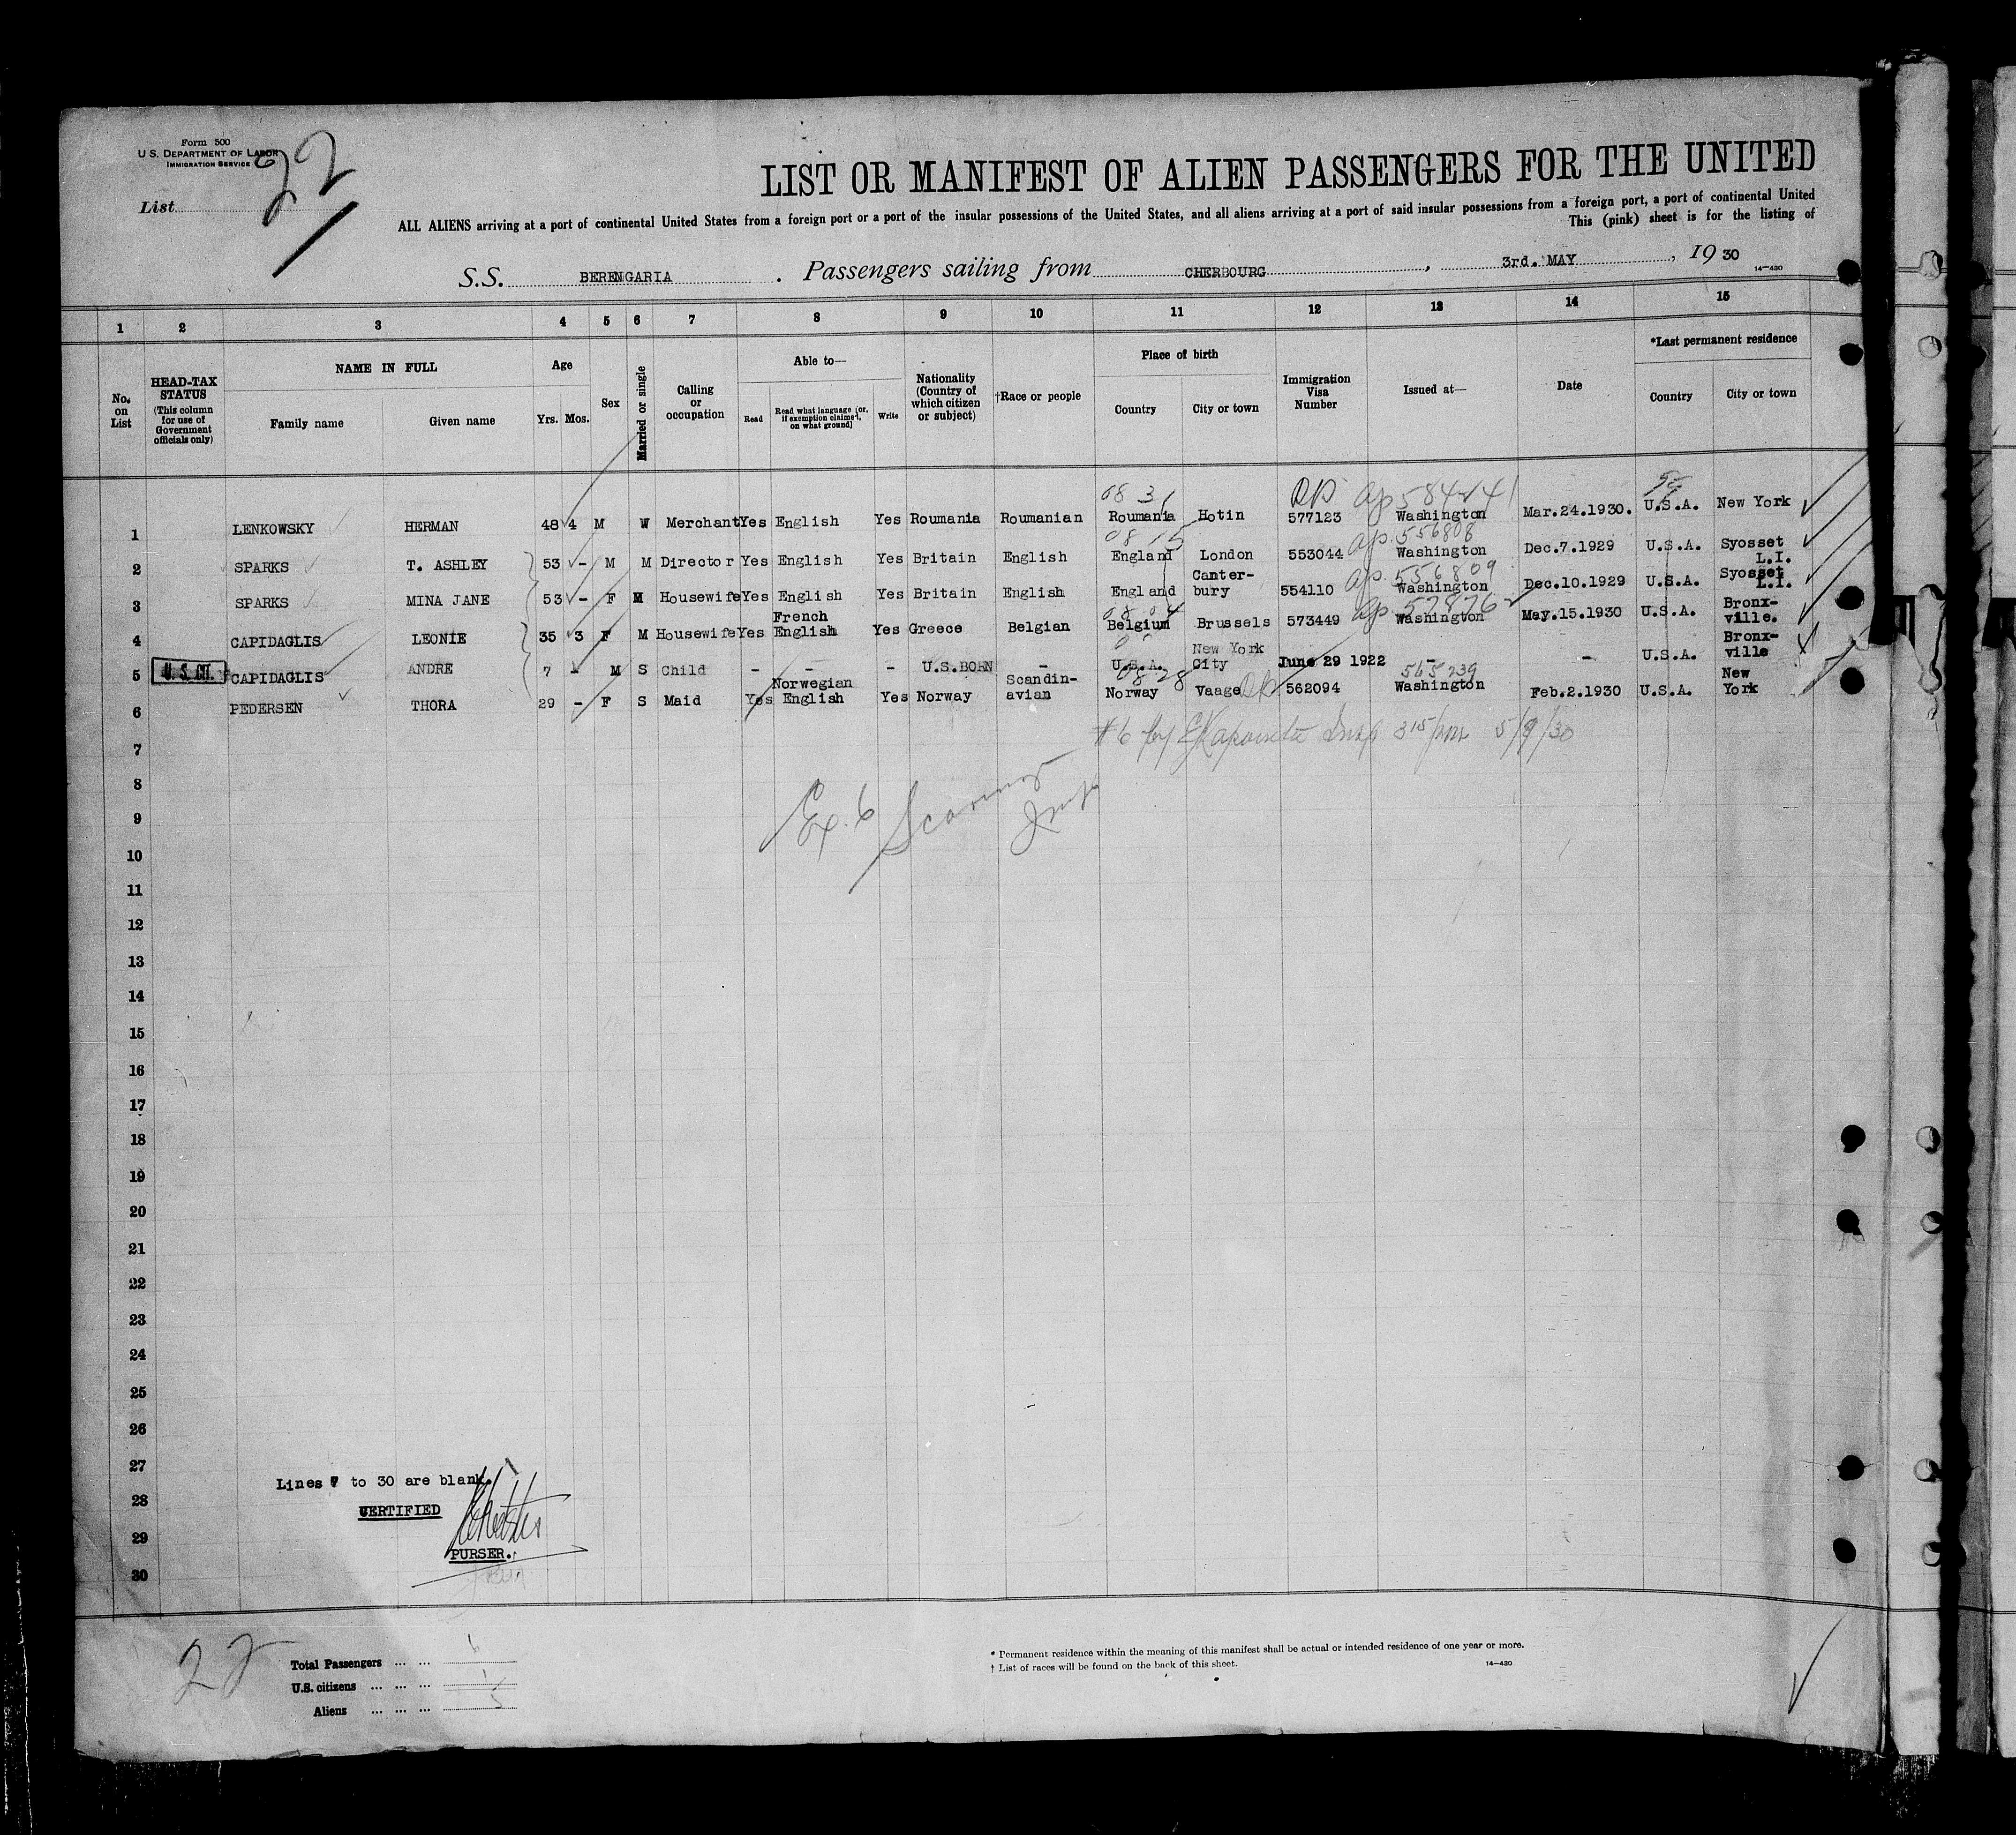 Form 500
U.S. DEPARTMENT OF LABOR
IMMIGRATION SERVICE
List 22
LIST OR MANIFEST OF ALIEN PASSENGERS FOR THE UNITED
ALL ALIENS arriving at a port of continental United States from a foreign port or a port of the insular possessions of the United States, and all aliens arriving at a port of said insular possessions from a foreign port, a port of continental United
This (pink) sheet is for the listing of
S.S. BERENGARIA . Passengers sailing from CHERBOURG , 3rd. MAY , 19 30
14—430
1 2 3 4 5 6 7 8 9 10 11 12 13 14 15
No. on List
HEAD-TAX STATUS (This column for use of Government officials only)
NAME IN FULL
Family name Given name
Age
Yrs. Mos.
Sex
Married or single
Calling or occupation
Able to—
Read Read what language (or, if exemption claimed, on what ground) Write
Nationality (Country of which citizen or subject)
†Race or people
Place of birth
Country City or town
Immigration Visa Number
Issued at—
Date
*Last permanent residence
Country City or town
1 LENKOWSKY HERMAN 48 4 M W Merchant Yes English Yes Roumania Roumanian Roumania Hotin 577123 Washington Mar.24.1930. U.S.A. New York
2 SPARKS T. ASHLEY 53 - M M Director Yes English Yes Britain English England London 553044 Ap. 556808 Washington Dec.7.1929 U.S.A. Syosset L.I.
3 SPARKS MINA JANE 53 - F M Housewife Yes English Yes Britain English England Canter-bury 554110 Ap. 556809 Washington Dec.10.1929 U.S.A. Syosset L.I.
4 CAPIDAGLIS LEONIE 35 3 F M Housewife Yes French English Yes Greece Belgian Belgium Brussels 573449 Washington May.15.1930 U.S.A. Bronx-ville.
5 U.S. CIT. CAPIDAGLIS ANDRE 7 - M S Child - - - U.S.BORN - U.S.A. New York City June 29 1922 - - U.S.A. Bronx-ville
6 PEDERSEN THORA 29 - F S Maid Yes Norwegian English Yes Norway Scandin-avian Norway Vaage 562094 565239 Washington Feb.2.1930 U.S.A. New York
#6 by 3 15 pm 5/9/30
7
8
Ex. 6
9
10
11
12
13
14
15
16
17
18
19
20
21
22
23
24
25
26
27
Lines 7 to 30 are blank.
28
CERTIFIED
29
PURSER.
30
22
Total Passengers ... ... 6
U.S. citizens ... ... ... 1
Aliens ... ... ... 5
* Permanent residence within the meaning of this manifest shall be actual or intended residence of one year or more.
† List of races will be found on the back of this sheet.
14—430